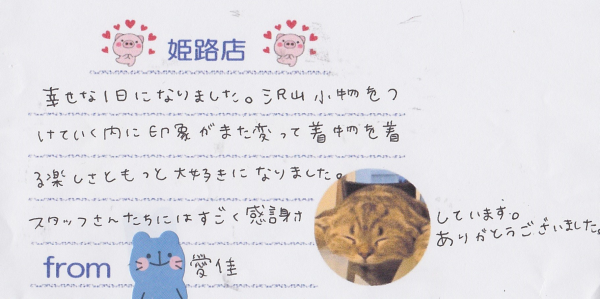 姫路店
幸せな1日になりました。沢山小物をつ
けていく内に印象がまた変って着物を着
る楽しさともっと大好きになりました。
スタッフさんたちにはすごく感謝
しています。
ありがとうございました。
from 愛佳